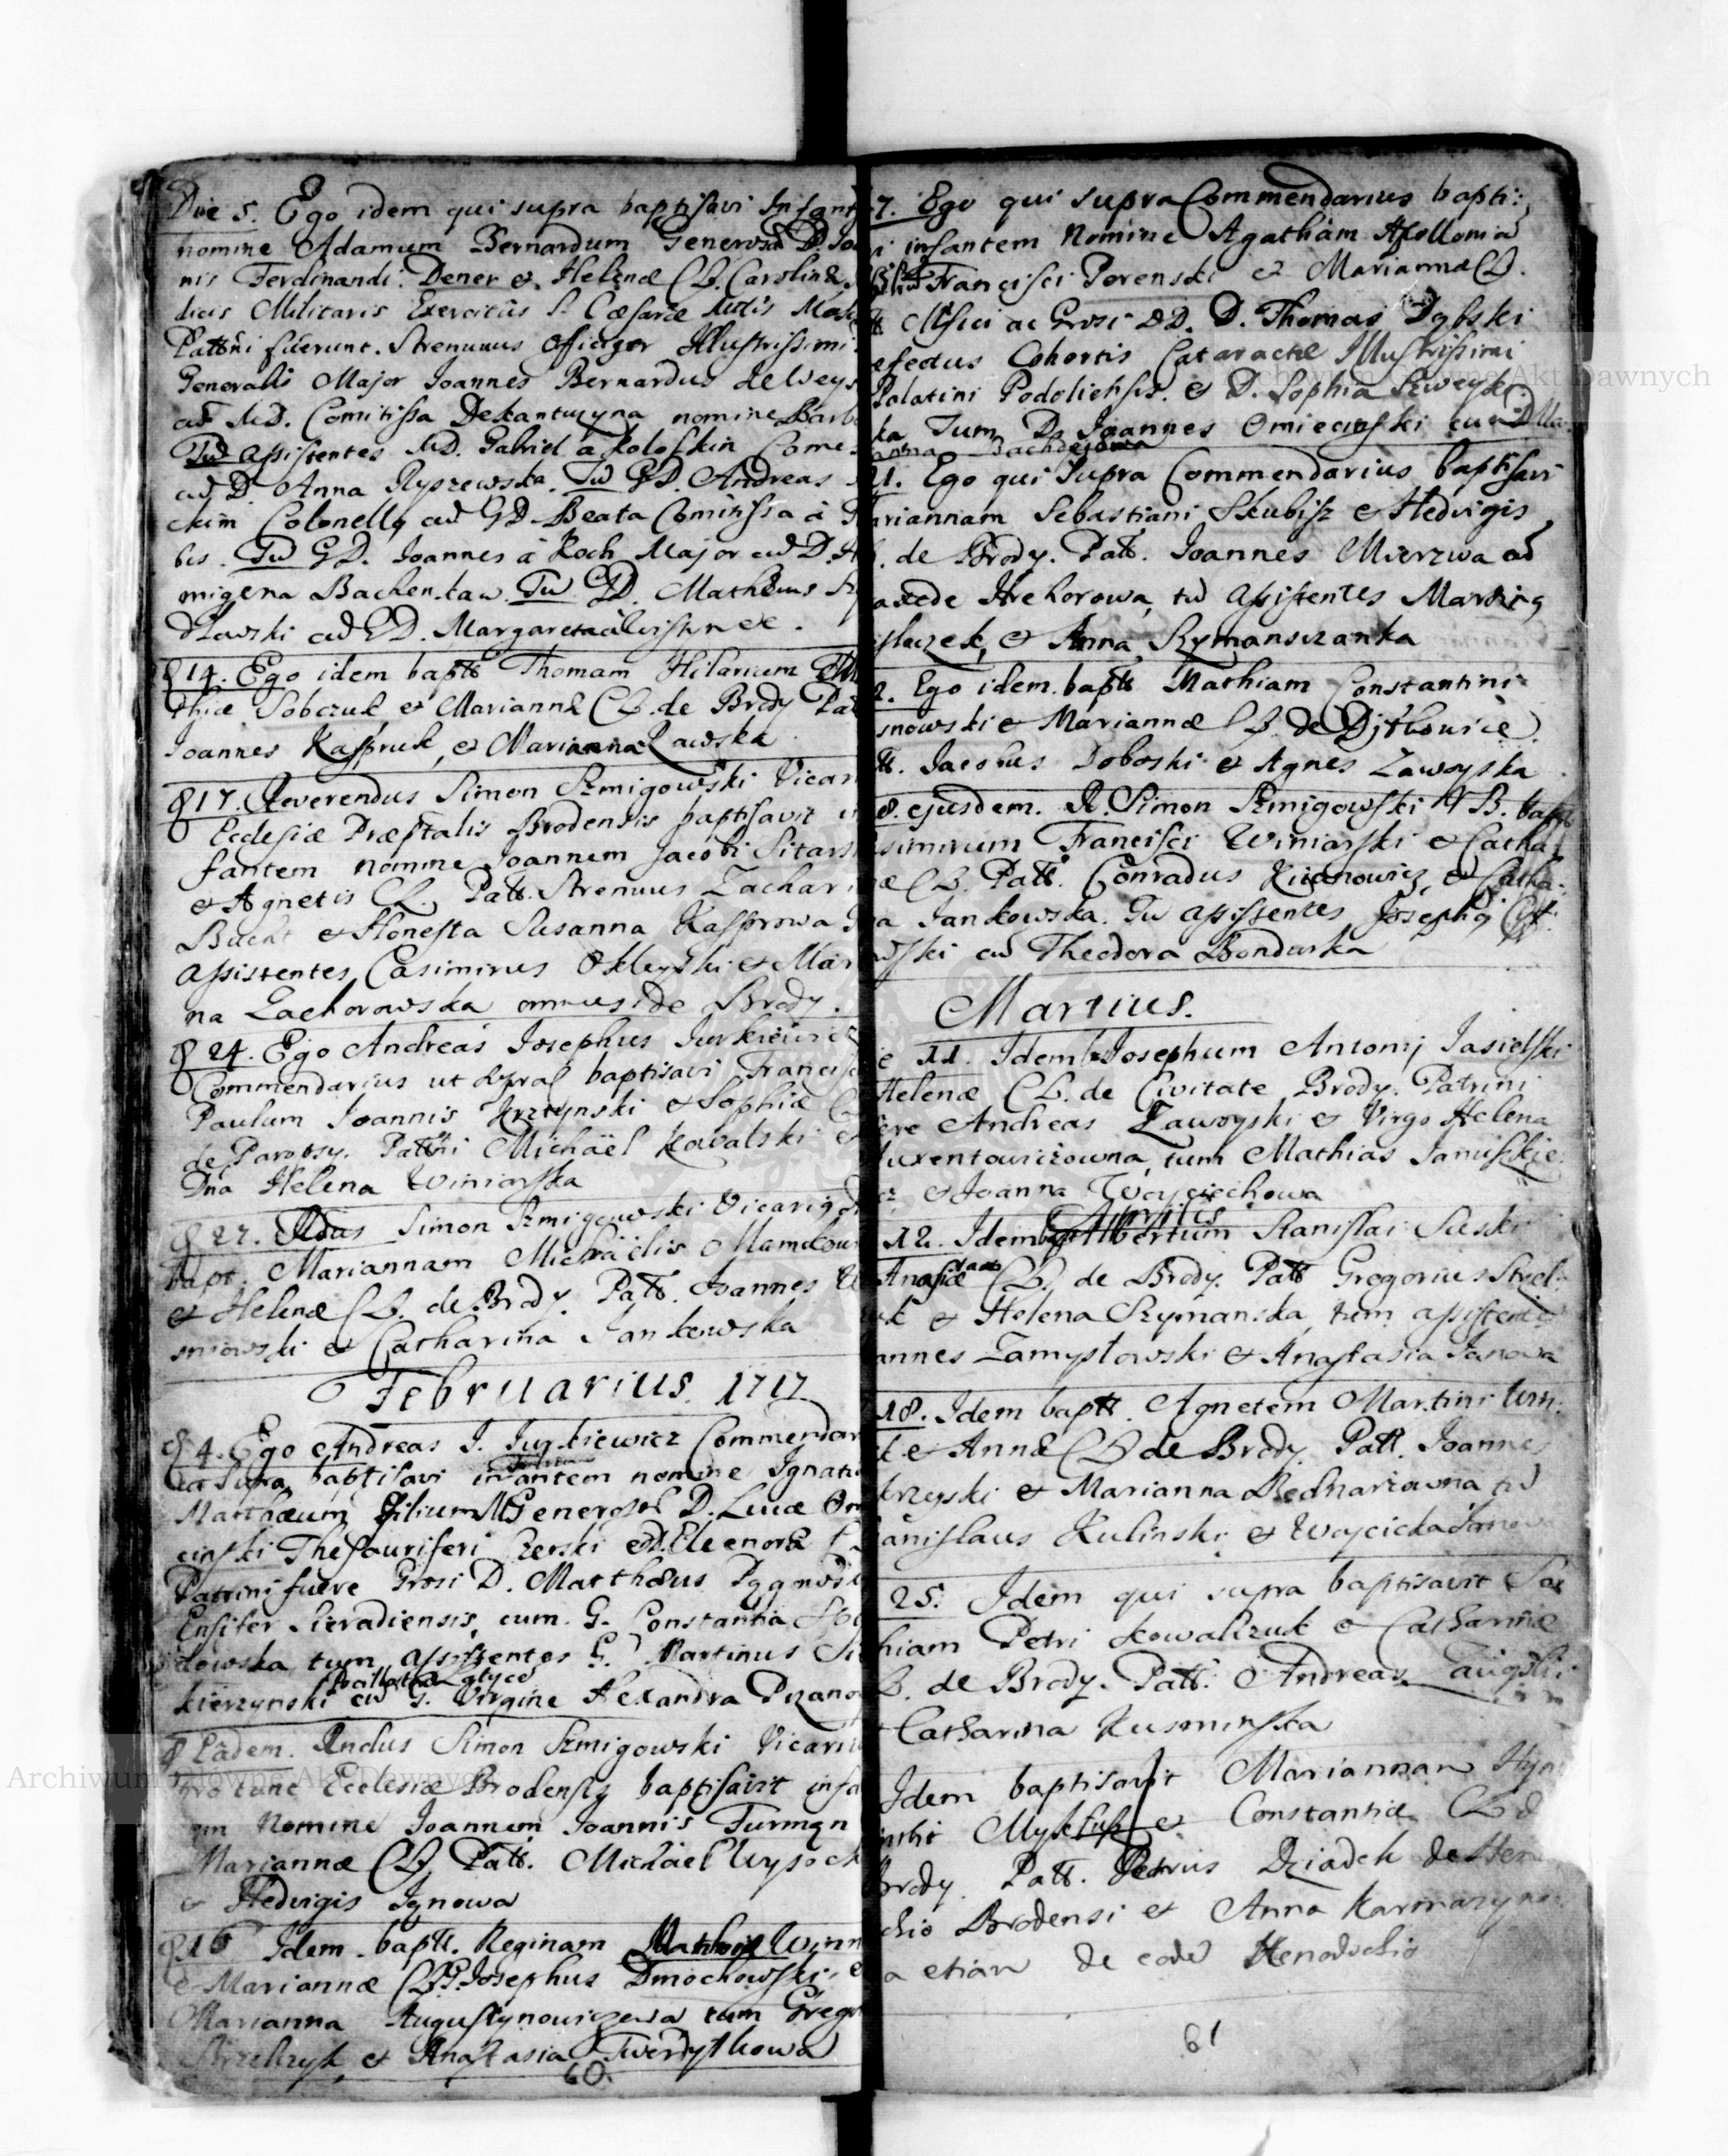 Die 5. Ego idem qui supra baptisavi Infant
nomine Adamum Bernardum Generosi D. Joa
nis Ferdinandi Dener et Helenæ CL. Carolinæ
dicis Militaris Exercitûs S. Cæsaræ Mttis Mosc
Pattrini fuerunt. Strenuus Officzer Illustrissimi
Generalis Major Joannes Bernardus de Weys
cum MD. Comitissa Dekantuzyna nomine Barb
Tum Assistentes MD. Gabriel a Kolofkin Come
cum D. Anna Ryszewska. Tum GD. Andreas
chim Colonellus cum GD Beata Comitissa à
bis. Tum GD. Joannes à Koch Major cum D. H
migena Bachen. Tum GD. Mathæus
dlawski cum GD. Margareta
14. Ego idem baptt Thomam Hilarium Ma
thiæ Sobczuk et Mariannæ CL. de Brody Pat
Joannes Kaspruk, et Marianna Rawska
17. Reverendus Simon Szmigowski Vicari
Ecclesiæ Præptalis Brodensis baptisavit in
fantem nomine Joannem Jacobi Sitars
et Agnetis CL. Patt. Strenuus Zachari
Bucht et Honesta Susanna Kasprowa
Assistentes Casimirus Okleyski et Mari
na Lachorowska omnes de Brody.
24. Ego Andreas Josephus Jurkiewicz
Commendarius ut supra baptisavi Francisc
Paulum Joannis Krztynski et Sophiæ C
de Paropsy. Pattrini Michäel Kowalski et
Dna Helena Winiarska
27. Rdus Simon Szmigowski Vicarius
bapt. Mariannam Michäelis Mamckow
et Helenæ CL. de Brody. Patt. Joannes
sniowski et Catharina Jankowska
Februarius. 1717
4. Ego Andreas J. Jurkiewicz Commendar
ut Supra baptisavi infantem nomine Ignati
Matthæum filium MGenerosi D. Lucæ Om
cinski Thesauriferi Czerski et Eleonoræ
Patrini fuere Grosi D. Matthæus
Ensifer Sieradiensis, cum G. Constantia
dowska tum assistentes G. Martinus
kierzynski cum G. Virgine Alexandra Pizano
Eadem. Rndus Simon Szmigowski Vicariu
pro tunc Ecclesiæ Brodensis baptisavit infa
em Nomine Joannem Joannis Furman
Mariannæ CL. Patt. Michäel Wysock
et Hedvigis Jgnowa
16 Idem baptt. Reginam Winn
et Mariannæ CL. P. Josephus Dmochowski, et
Marianna Augustynowiczowa tum Grego
et Anastasia Twerdythowa
60.
7. Ego qui supra Commendarius bapti:
i infantem Nomine Agatham Apollonia
Francisci Porenski et Mariannæ CL.
Mfici ac Grosi DD. D. Thomas Dybski
efectus Cohortis Cataractæ Illustrissimi
Palatini Podoliensis. et D. Sophia Szweyk
ka Tum D. Joannes Omiecinski cum D Ma
anna Bachdejowa
21. Ego qui Supra Commendarius baptisavi
ariannam Sebastiani Skubisz et Hedvigis
. de Brody. Patt. Joannes Mierzwa cum
axede Hrehorowa, tum Assistentes Martinus
slaczek, et Anna Szymansczanka
2. Ego idem baptt Mathiam Constantini
snowski et Mariannæ CL. de Dytkowice.
tt. Jacobus Doboski et Agnes Zawoyska
8. ejusdem. R. Simon Szmigowski V B. baptt
simirum Francisci Winiarski et Catha
æ CL. Patt. Conradus Kiianowicz, et Catha:
na Jankowska. Tum assistentes Josephus
wski cum Theodora Bondarka
Martius.
ie 11. Idem bt Josephum Antonij Jasielski
Helenæ CL. de Civitate Brody. Patrini
ere Andreas Zawoyski et Virgo Helena
urentowiczowna, tum Mathias Januskie:
cz, et Joanna Woyciechowa
12. Idem bapt Albertum Stanislai Suski
Anastasiæ CL. de Brody. Patt Gregorius Strel:
uk et Helena Szymanska, tum assistentes
annes Zamyslowski et Anastasia Janowa
18. Idem baptt. Agnetem Martini Win:
k et Annæ CL de Brody. Patt. Joannes
krzyski et Marianna Bednarzowna tum
anislaus Kulinski et Woycicka Janow
25. Idem qui supra baptisavit So
hiam Petri Kowalczuk et Catharinæ
L. de Brody. Patt. Andreas
Catharina Kusminska
Idem baptisavit Mariannam Hya
inthi et Constantiæ CL d
Brody. Patt. Petrus Dziadek de Hen
chio Brodensi et Anna Karmazyno
a etiam de eodem Henodochio
61
Archiwum Główne Akt Dawnych
Archiwum Główne Akt Dawnych